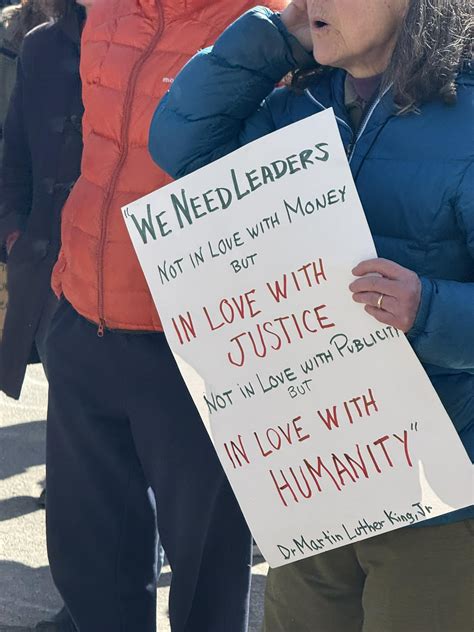 "We Need Leaders
Not in Love with Money
but
In Love with
Justice
Not in Love with Publicity
but
In Love with
Humanity"
Dr Martin Luther King, Jr